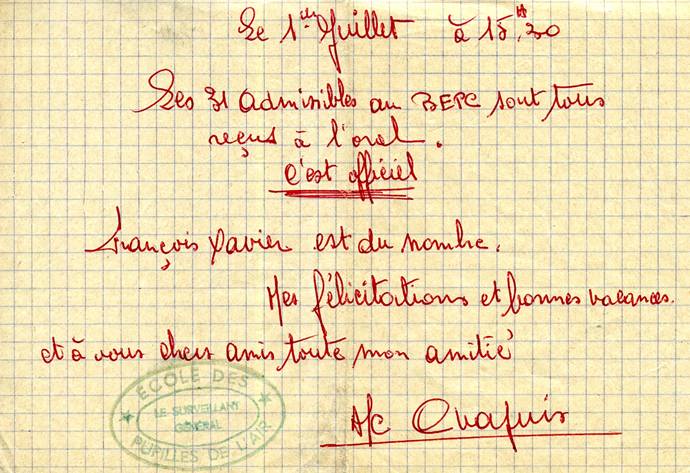 Le 1er Juillet à 15H,30
Les 31 admissibles au BEPC sont tous
reçus à l'oral.
C'est officiel
François Xavier est du nombre.
Mes félicitations et bonnes vacances.
et à vous chers amis toute mon amitié
A/C Chapuis
ECOLE DES
LE SURVEILLANT
GÉNÉRAL
PUPILLES DE L'AIR